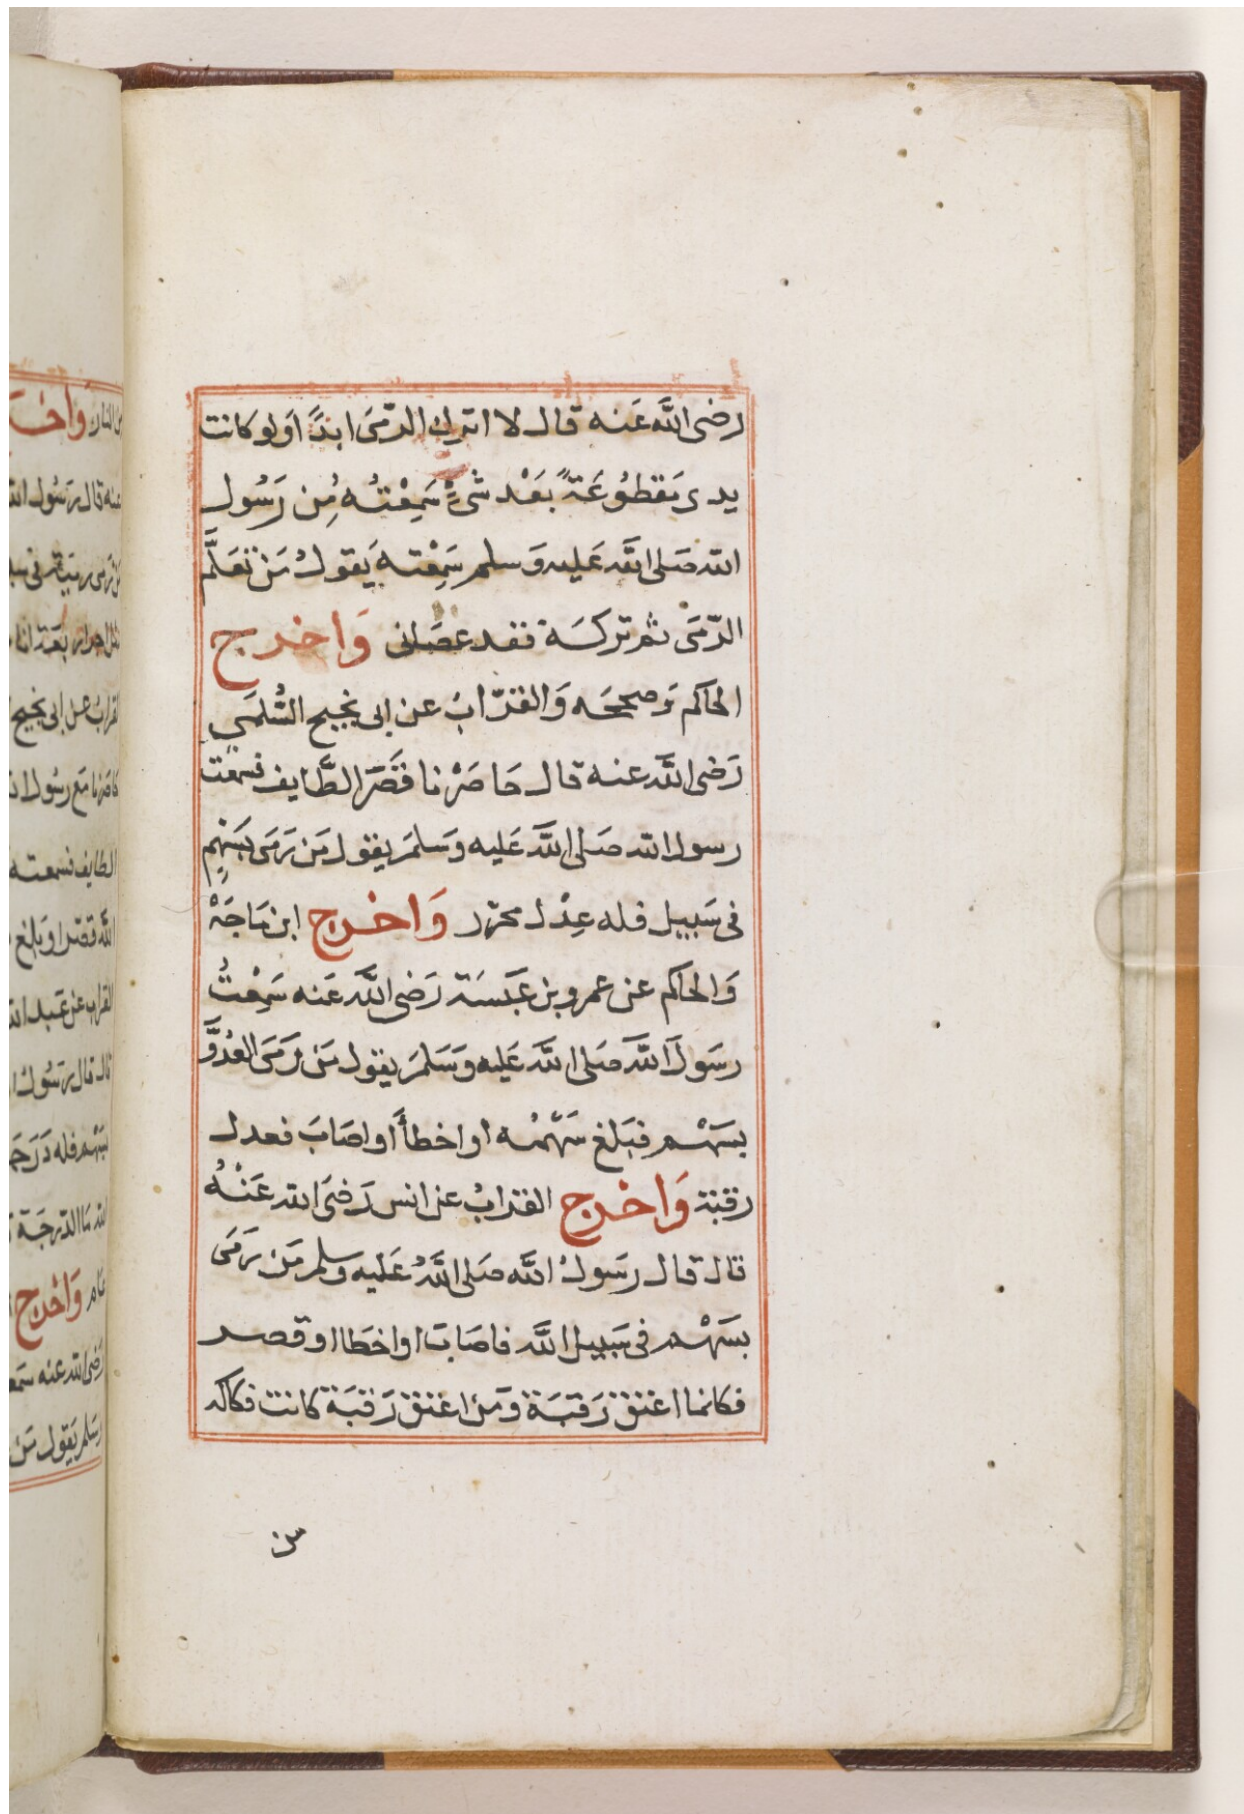 رضى اللَّه عَنه قال لا اترك الرّمَى ابدًا اوَلو كانت
يدى مَقطُوعَةً بَعْد شىءٍ سَمِعْتُه مِن رَسُول
الله صَلى اللَّه عَليه وَسلم سَمِعْته يَقول مَن تعَلَّم
الرّمَى ثم تركَه فقد عصَانى وَاخرج
الحاكم وَصححَه وَالقرّابُ عن ابى نجيح السُّلمَي
رَضى اللَّه عنه قال حَاصَرْنا قَصَر الطَّايف فسمعت
رسول الله صَلى اللَّه عَليه وسَلمَ يقول مَن رَمَى بسَهمٍ
فى سَبيل فله عِدْل محرّر وَاخرج ابن مَاجَةْ
وَالحاكم عن عمرو بن عَبَسَة رَضى اللَّه عَنه سَمِعْتُ
رسَولَ اللَّه صَلى اللَّه عَليه وَسَلمَ يقول مَن رَمَى العدُوَّ
بسَهْم فبَلغ سَهْمُه اواخطأَ اواصَابَ فعدل
رقبة وَاخرج القرابُ عن انس رَضىَ الله عَنْهُ
قال قال رسَولُ اللَّه صَلى اللَّهُ عَليه وسلم مَن رَمَى
بسَهْم فى سَبيل اللَّه فاصَابَ اواخطَا اوقصر
فكانما اعتق رَقبَة وَمَن اعتق رَقبَة كانت فكاكه
من